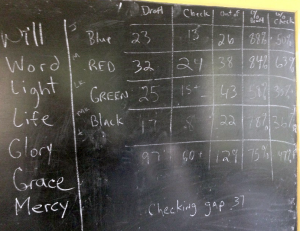 Draft Check out of
Will Blue 23 13 26 88%
Word RED 32 24 38 84% 63%
Light
GREEN 25 15 43 58%
Life Black 17 8 22 78%
Glory 97 60 129 75%
Grace
Mercy Checking gap 37